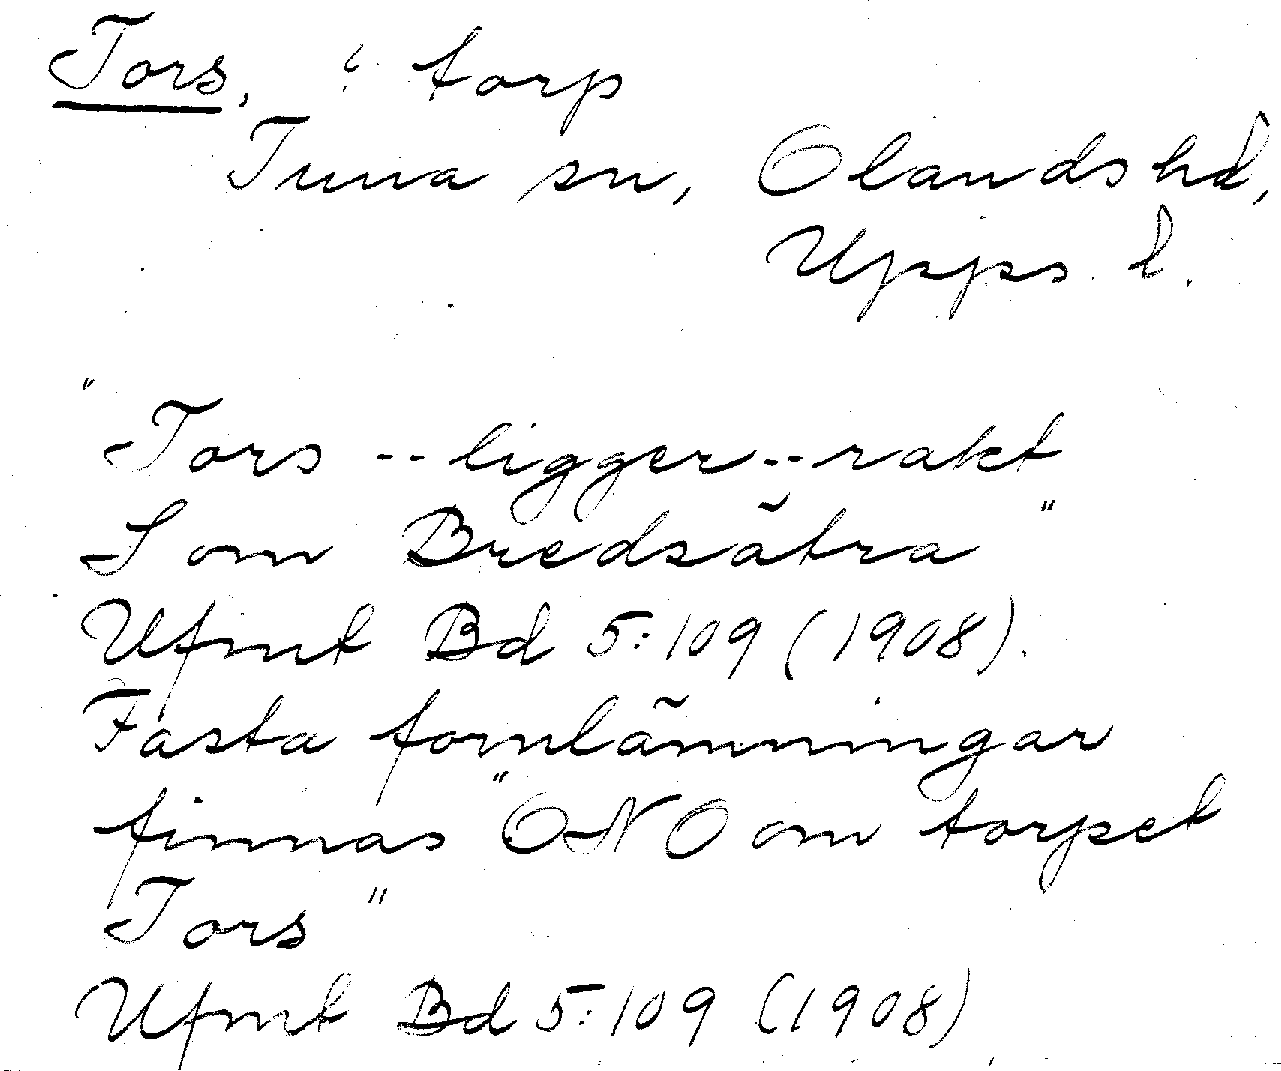 Tors, torp
Tuna sn, Olands hd,
Upps. l.
"Tors -- ligger -- rakt
S om Bredsätra"
Ufmt Bd 5:109 (1908).
Fasta fornlämningar
finnas "ONO om torpet
Tors"
Ufmt Bd 5:109 (1908)